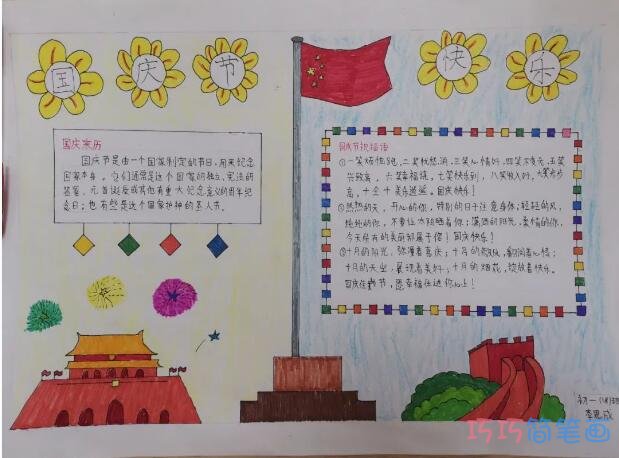 国庆节
快乐
国庆来历
国庆节是由一个国家制定的节日,用来纪念
国家本身。它们通常是这个国家的独立、宪法的
签署、元首诞辰或其他有重大纪念意义的周年纪
念日;也有些是这个国家护神的圣人节。
国庆节祝福语
①一笑烦恼跑,二笑怒憎消,三笑心情好,四笑不变老,五笑
兴致高,六笑幸福绕,七笑快乐到,八笑收入好,九笑步步
高,十全十美乐逍遥。国庆快乐!
②热热的天,开心的你,特别的日子注意身体;轻轻的风,
纯纯的你,不要让太阳晒着你;潇洒的阳光,柔情的你,
今天所有的美丽都属于你!国庆快乐!
③十月的阳光,弥漫着喜庆;十月的微风,翻阅着心情;
十月的天空,展现着美好;十月的烟花,绽放着快乐。
国庆佳节,愿幸福住进你心上!
初一(18)班
李思成
巧巧简笔画